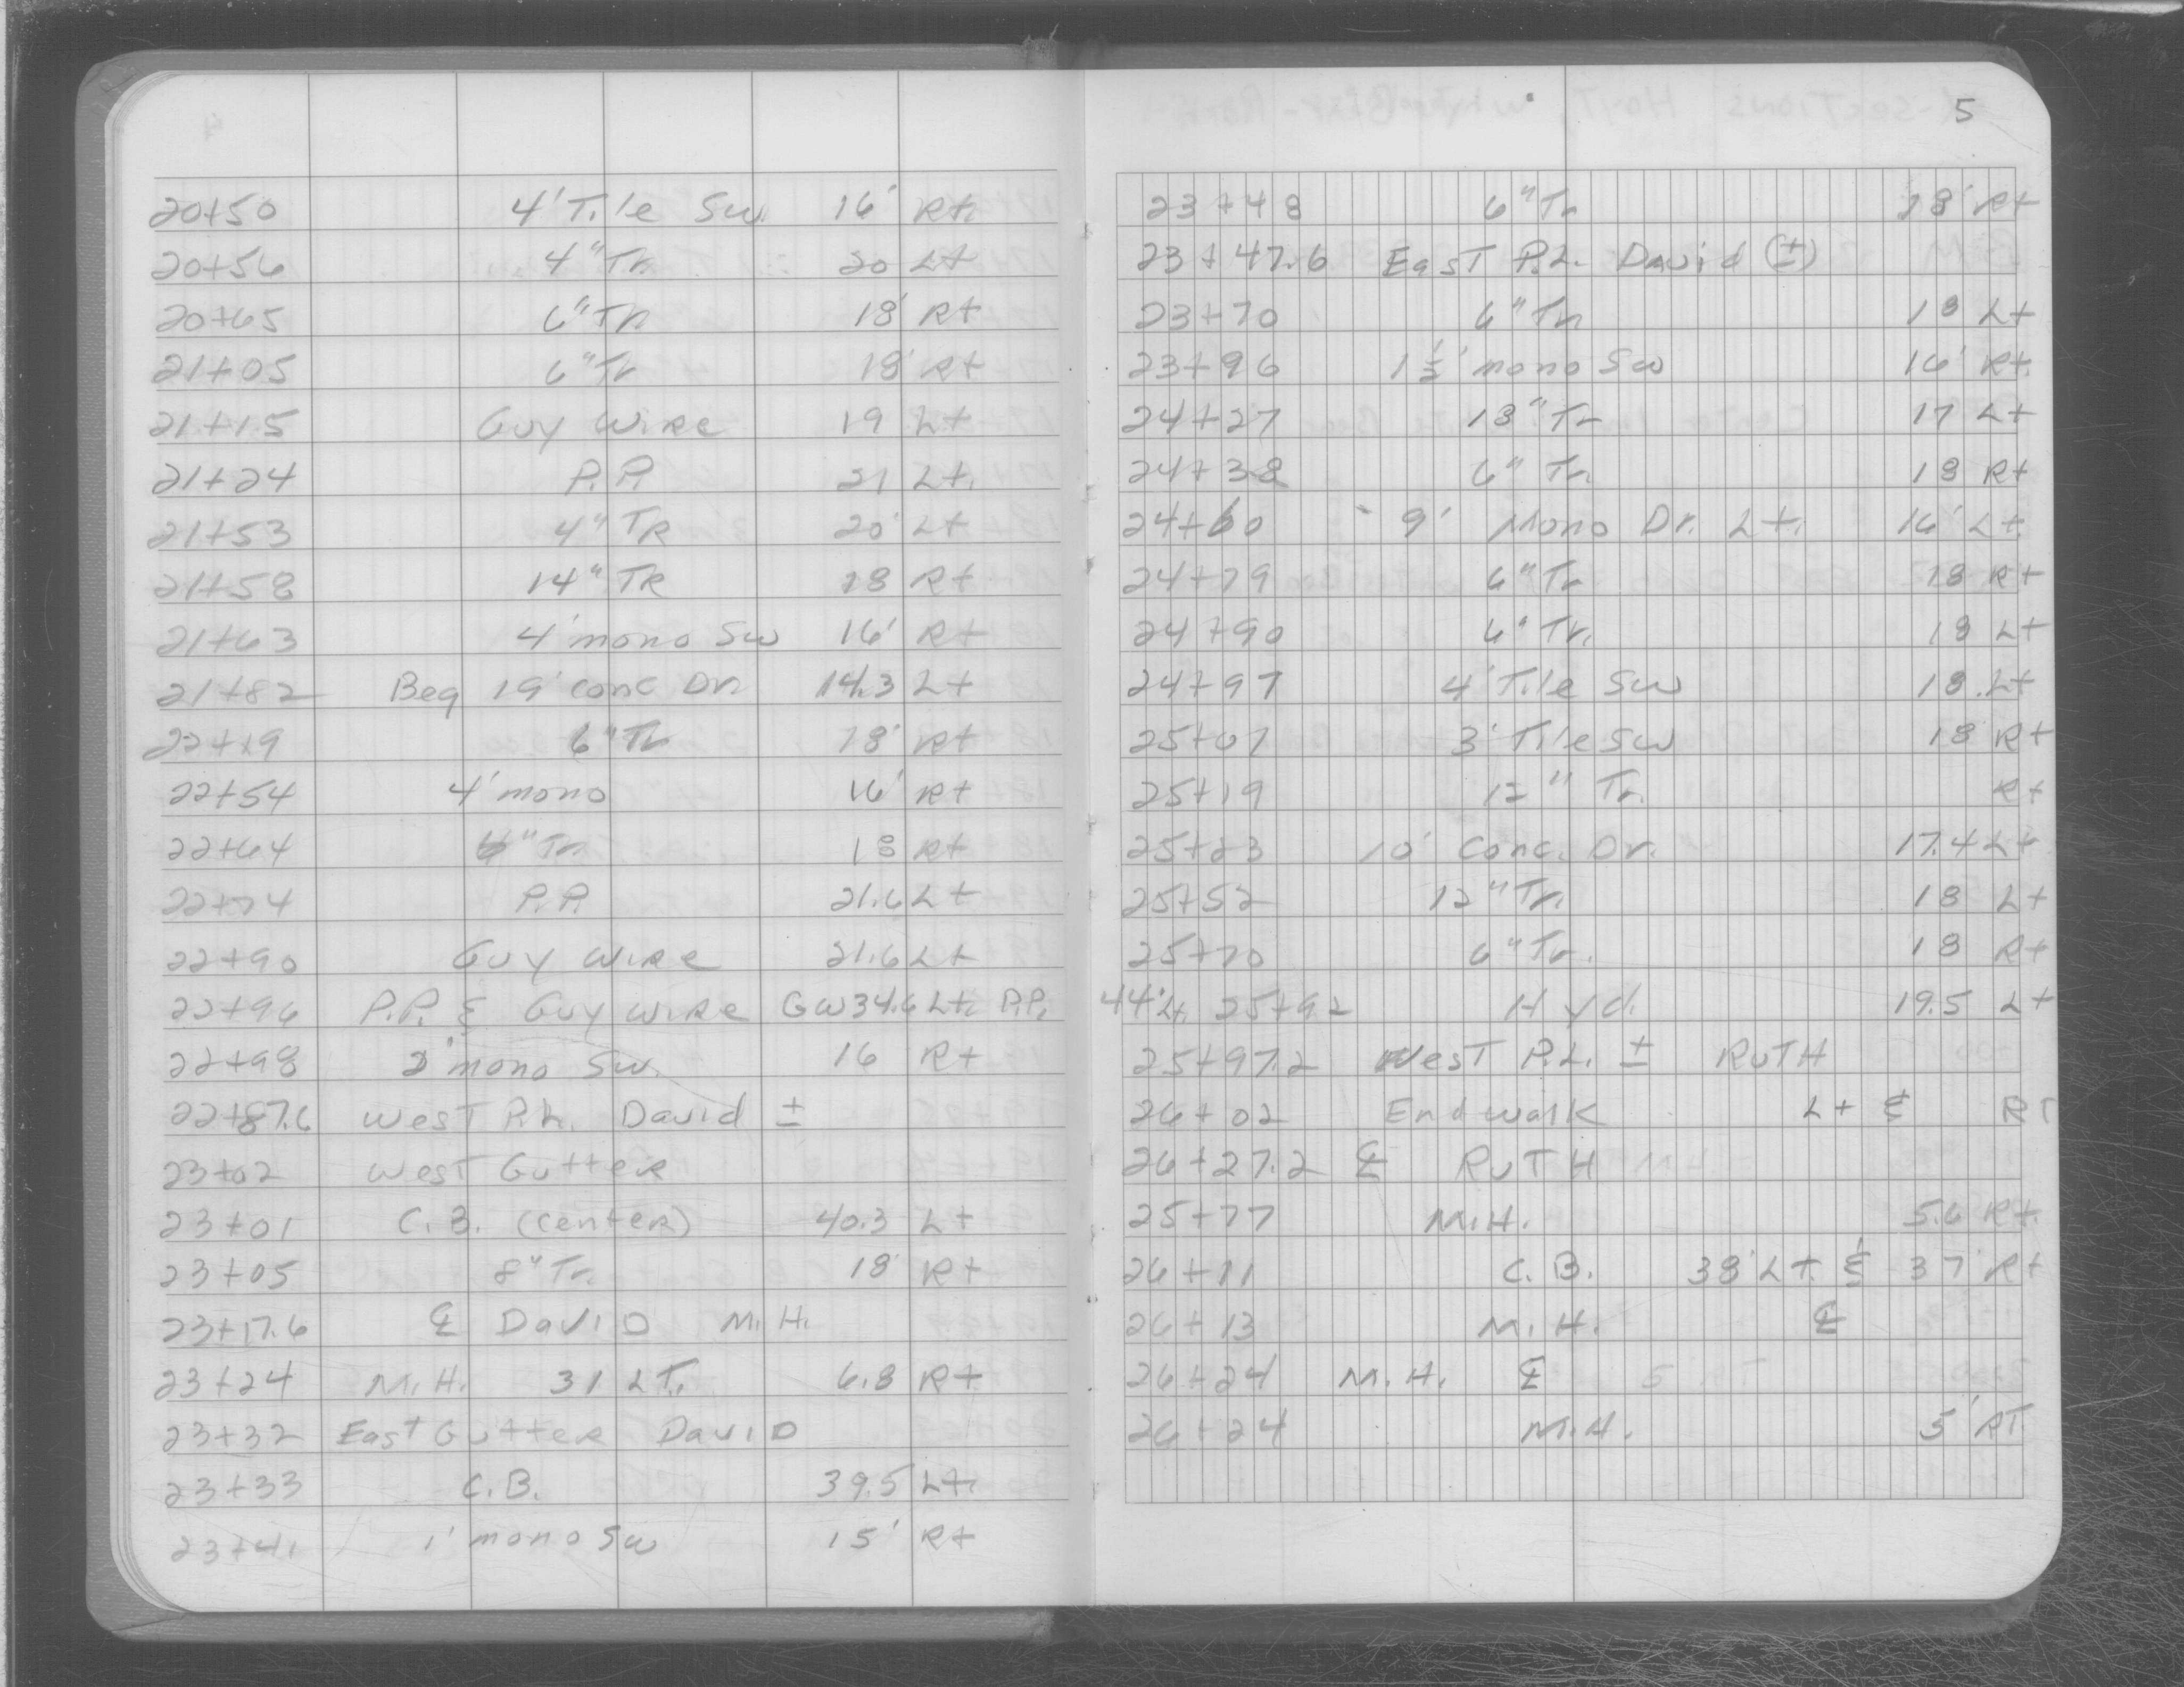 20+50 4' Tile Sw. 16' Rt.
20+56 4" Tr. 20 Lt
20+65 6" Tr 18' Rt
21+05 6" Tr 18' Rt
21+15 Guy Wire 19 Lt
21+24 P.P. 21 Lt.
21+53 4" TR 20' Lt
21+58 14" TR 18 Rt
21+63 4' mono Sw 16' Rt
21+82 Beg 19' conc Dr. 14.3 Lt
22+19 6" Tr 18' Rt
22+54 4' mono 16' Rt
22+64 " Tr. 18 Rt
22+74 P.P. 21.6 Lt
22+90 Guy Wire 21.6 Lt
22+96 P.P. & Guy Wire GW 34.6 Lt. P.P. 44' Lt.
22+98 2' mono Sw. 16 Rt
22+87.6 West P.L. David ±
23+02 West Gutter
23+01 C.B. (Center) 40.3 Lt
23+05 8" Tr. 18' Rt
23+17.6 ℄ David M.H.
23+24 M.H. 31 LT. 6.8 Rt
23+32 East Gutter David
23+33 C.B. 39.5 Lt.
23+41 1' mono Sw 15' Rt
5
23+48 6" Tr 18' Rt
23+47.6 East P.L. David (±)
23+70 6" Tr 18 Lt
23+96 1½' mono Sw 16' Rt.
24+27 18" Tr 17 Lt
24+38 6" Tr. 18 Rt
24+60 9' Mono Dr. Lt. 16' Lt.
24+79 6" Tr 18 Rt
24+90 6" Tr. 18 Lt
24+97 4' Tile Sw 18 Lt
25+07 3' Tile Sw 18 Rt
25+19 12" Tr. Rt
25+23 10' Conc. Dr. 17.4 Lt
25+52 12" Tr. 18 Lt
25+70 6" Tr. 18 Rt
25+92 Hyd. 19.5 Lt
25+97.2 West P.L. ± RUTH
26+02 End walk Lt & RT
26+27.2 ℄ RUTH
25+77 M.H. 5.6 Rt.
26+11 C.B. 38' Lt. & 37' Rt
26+13 M.H. ℄
26+24 M.H. ℄
26+24 M.H. 5' RT.